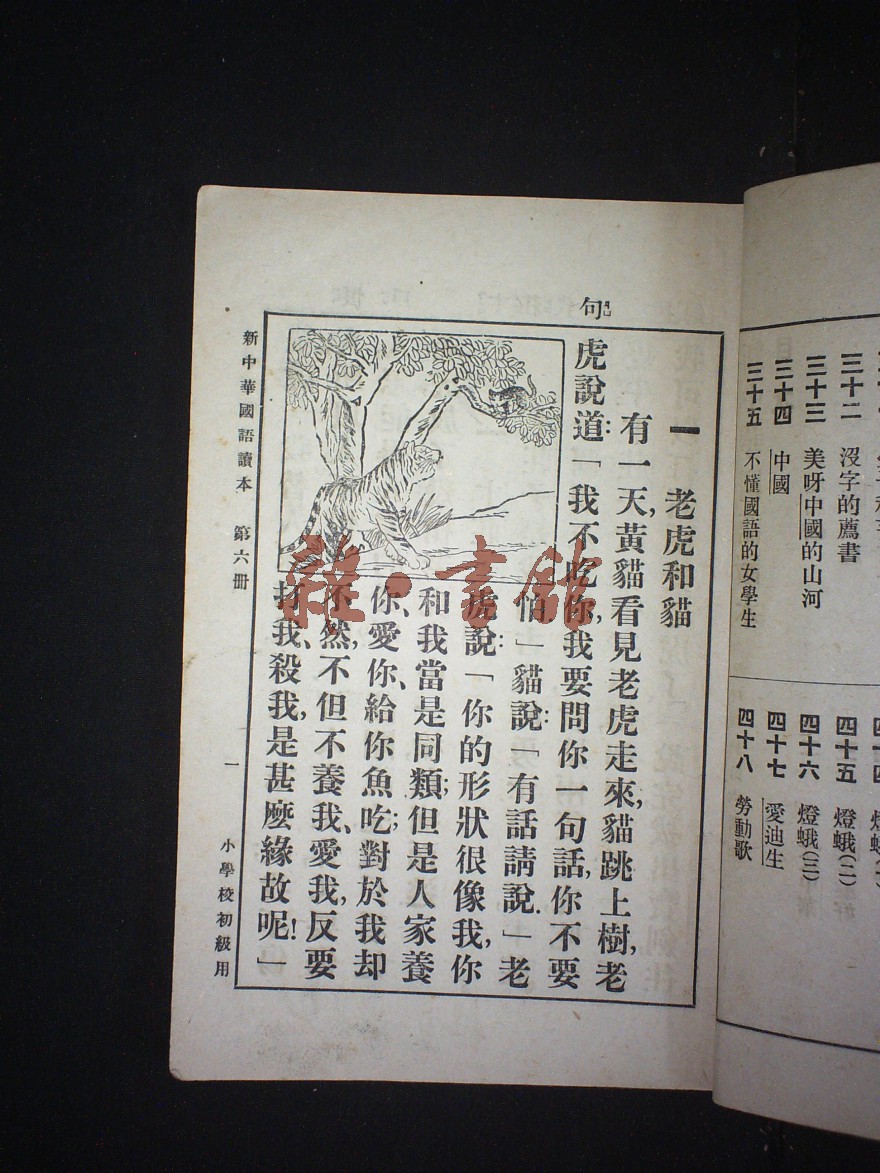 三十二 沒字的薦書
三十三 美呀中國的山河
三十四 中國
三十五 不懂國語的女學生
四十五 燈蛾(二)
四十六 燈蛾(三)
四十七 愛迪生
四十八 勞動歌
句
一 老虎和貓
有一天,黃貓看見老虎走來,貓跳上樹,老
虎說道:「我不吃你,我要問你一句話,你不要
怕。」貓說:「有話請說。」老
虎說:「你的形狀很像我,你
和我當是同類;但是人家養
你、愛你、給你魚吃;對於我却
不然,不但不養我、愛我,反要
打我、殺我,是甚麼緣故呢!」
新中華國語讀本 第六冊 一 小學校初級用
雜·書館